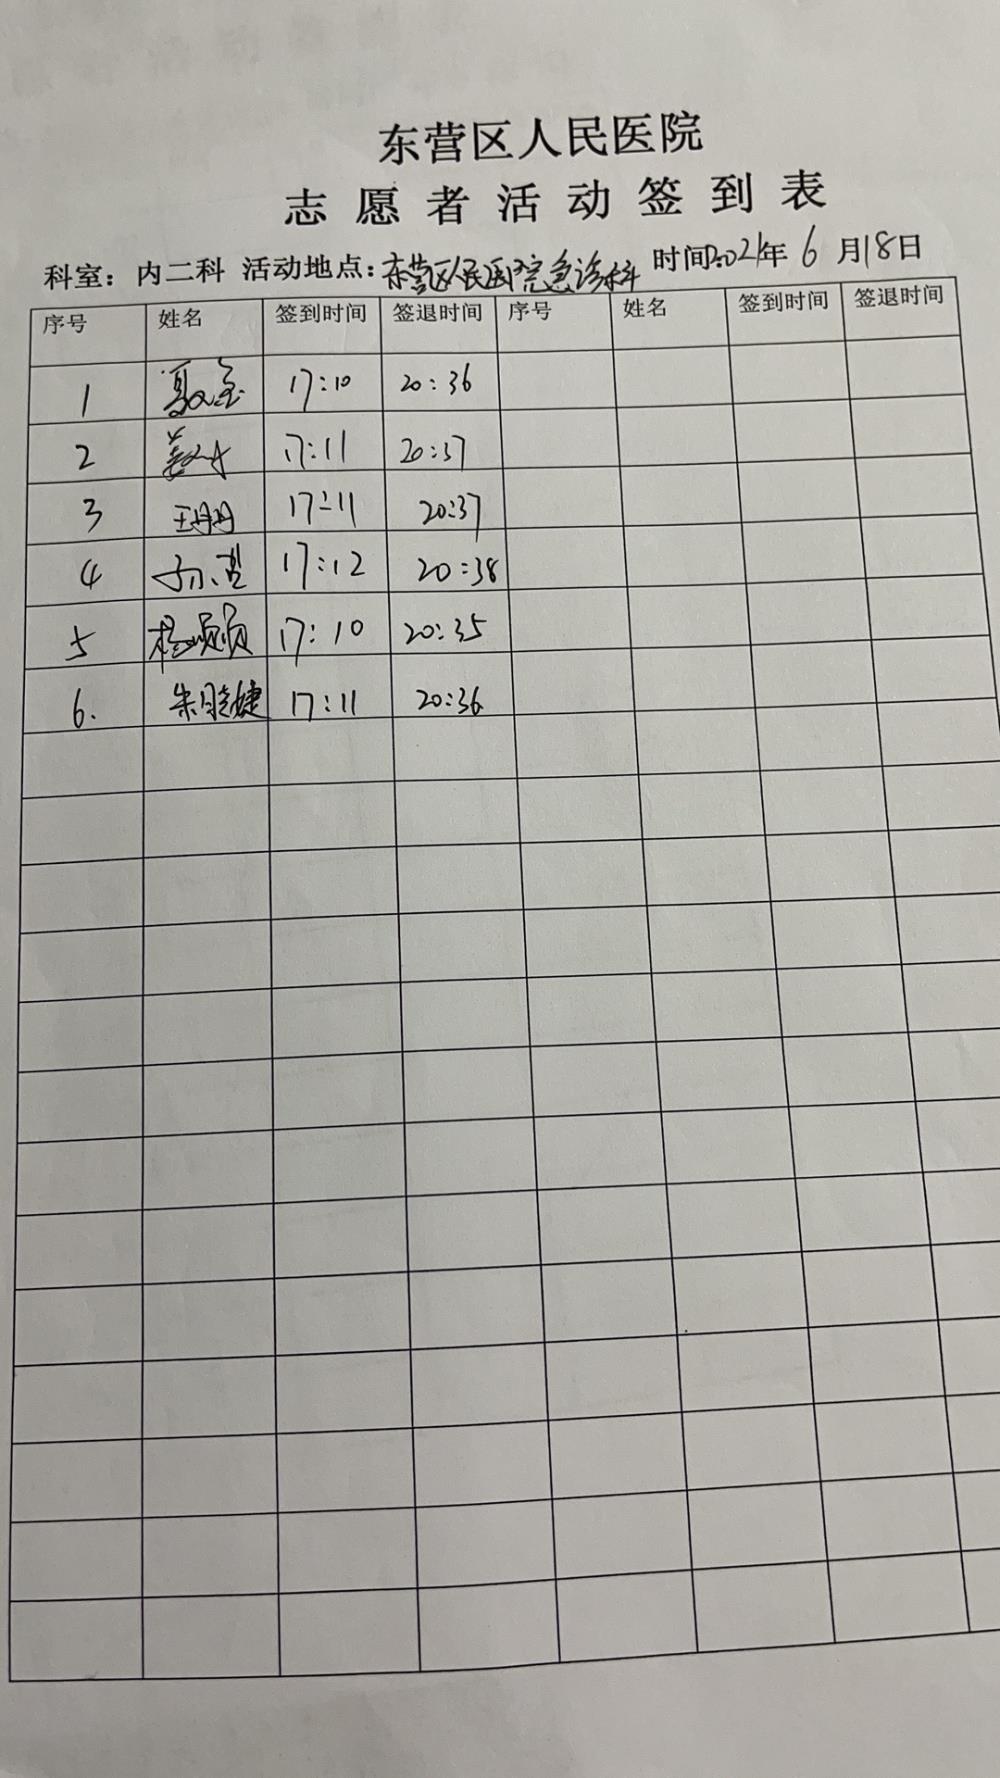 东营区人民医院
志愿者活动签到表
科室：内二科 活动地点：东营区人民医院急诊科 时间2021年6月18日
序号 姓名 签到时间 签退时间 序号 姓名 签到时间 签退时间
1 17:10 20:36
2 17:11 20:37
3 王丹丹 17:11 20:37
4 17:12 20:38
5 杨媛媛 17:10 20:35
6. 朱晓婕 17:11 20:36